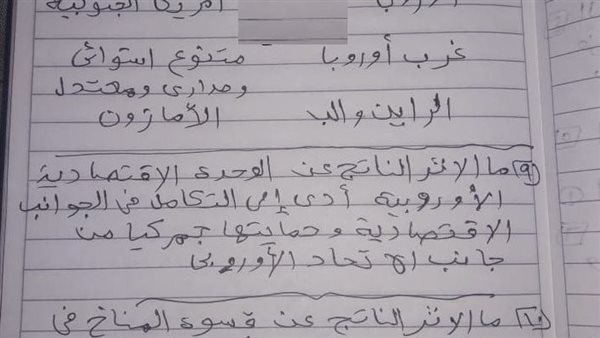 أمريكا الجنوبية
غرب أوروبا متنوع استوائى
ومدارى ومعتدل
الراين والب الأمازون
٩) ما الاثر الناتج عن الوحدة الاقتصادية
الأوروبية أدى إلى التكامل فى الجوانب
الاقتصادية وحمايتها جمركيا من
جانب الاتحاد الأوروبى
١٠) ما الاثر الناتج عن قسوة المناخ فى